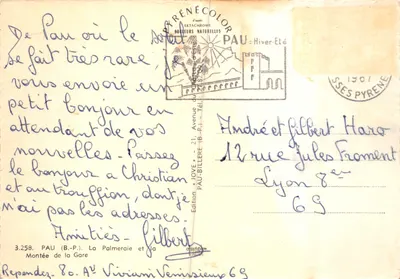 De Pau où le soleil
se fait très rare, je
vous envoie un
petit bonjour en
attendant de vos
nouvelles. Passez
le bonjour à Christian
et au trouffion, dont je
n'ai pas les adresses.
Amitiés. Gilbert
3.258. PAU (B.-P.) La Palmeraie et la
Montée de la Gare
Repondez. 80. Av Viviani Venissieux 69
PYRENECOLOR
COULEURS NATURELLES
PAU: Hiver-Eté
Edition "JOVE" - 21, Avenue
PAU-BILLERE (B.-P.)
1967
SSES PYRENE
André et Gilbert Haro
12 rue Jules Froment
Lyon 8em
69